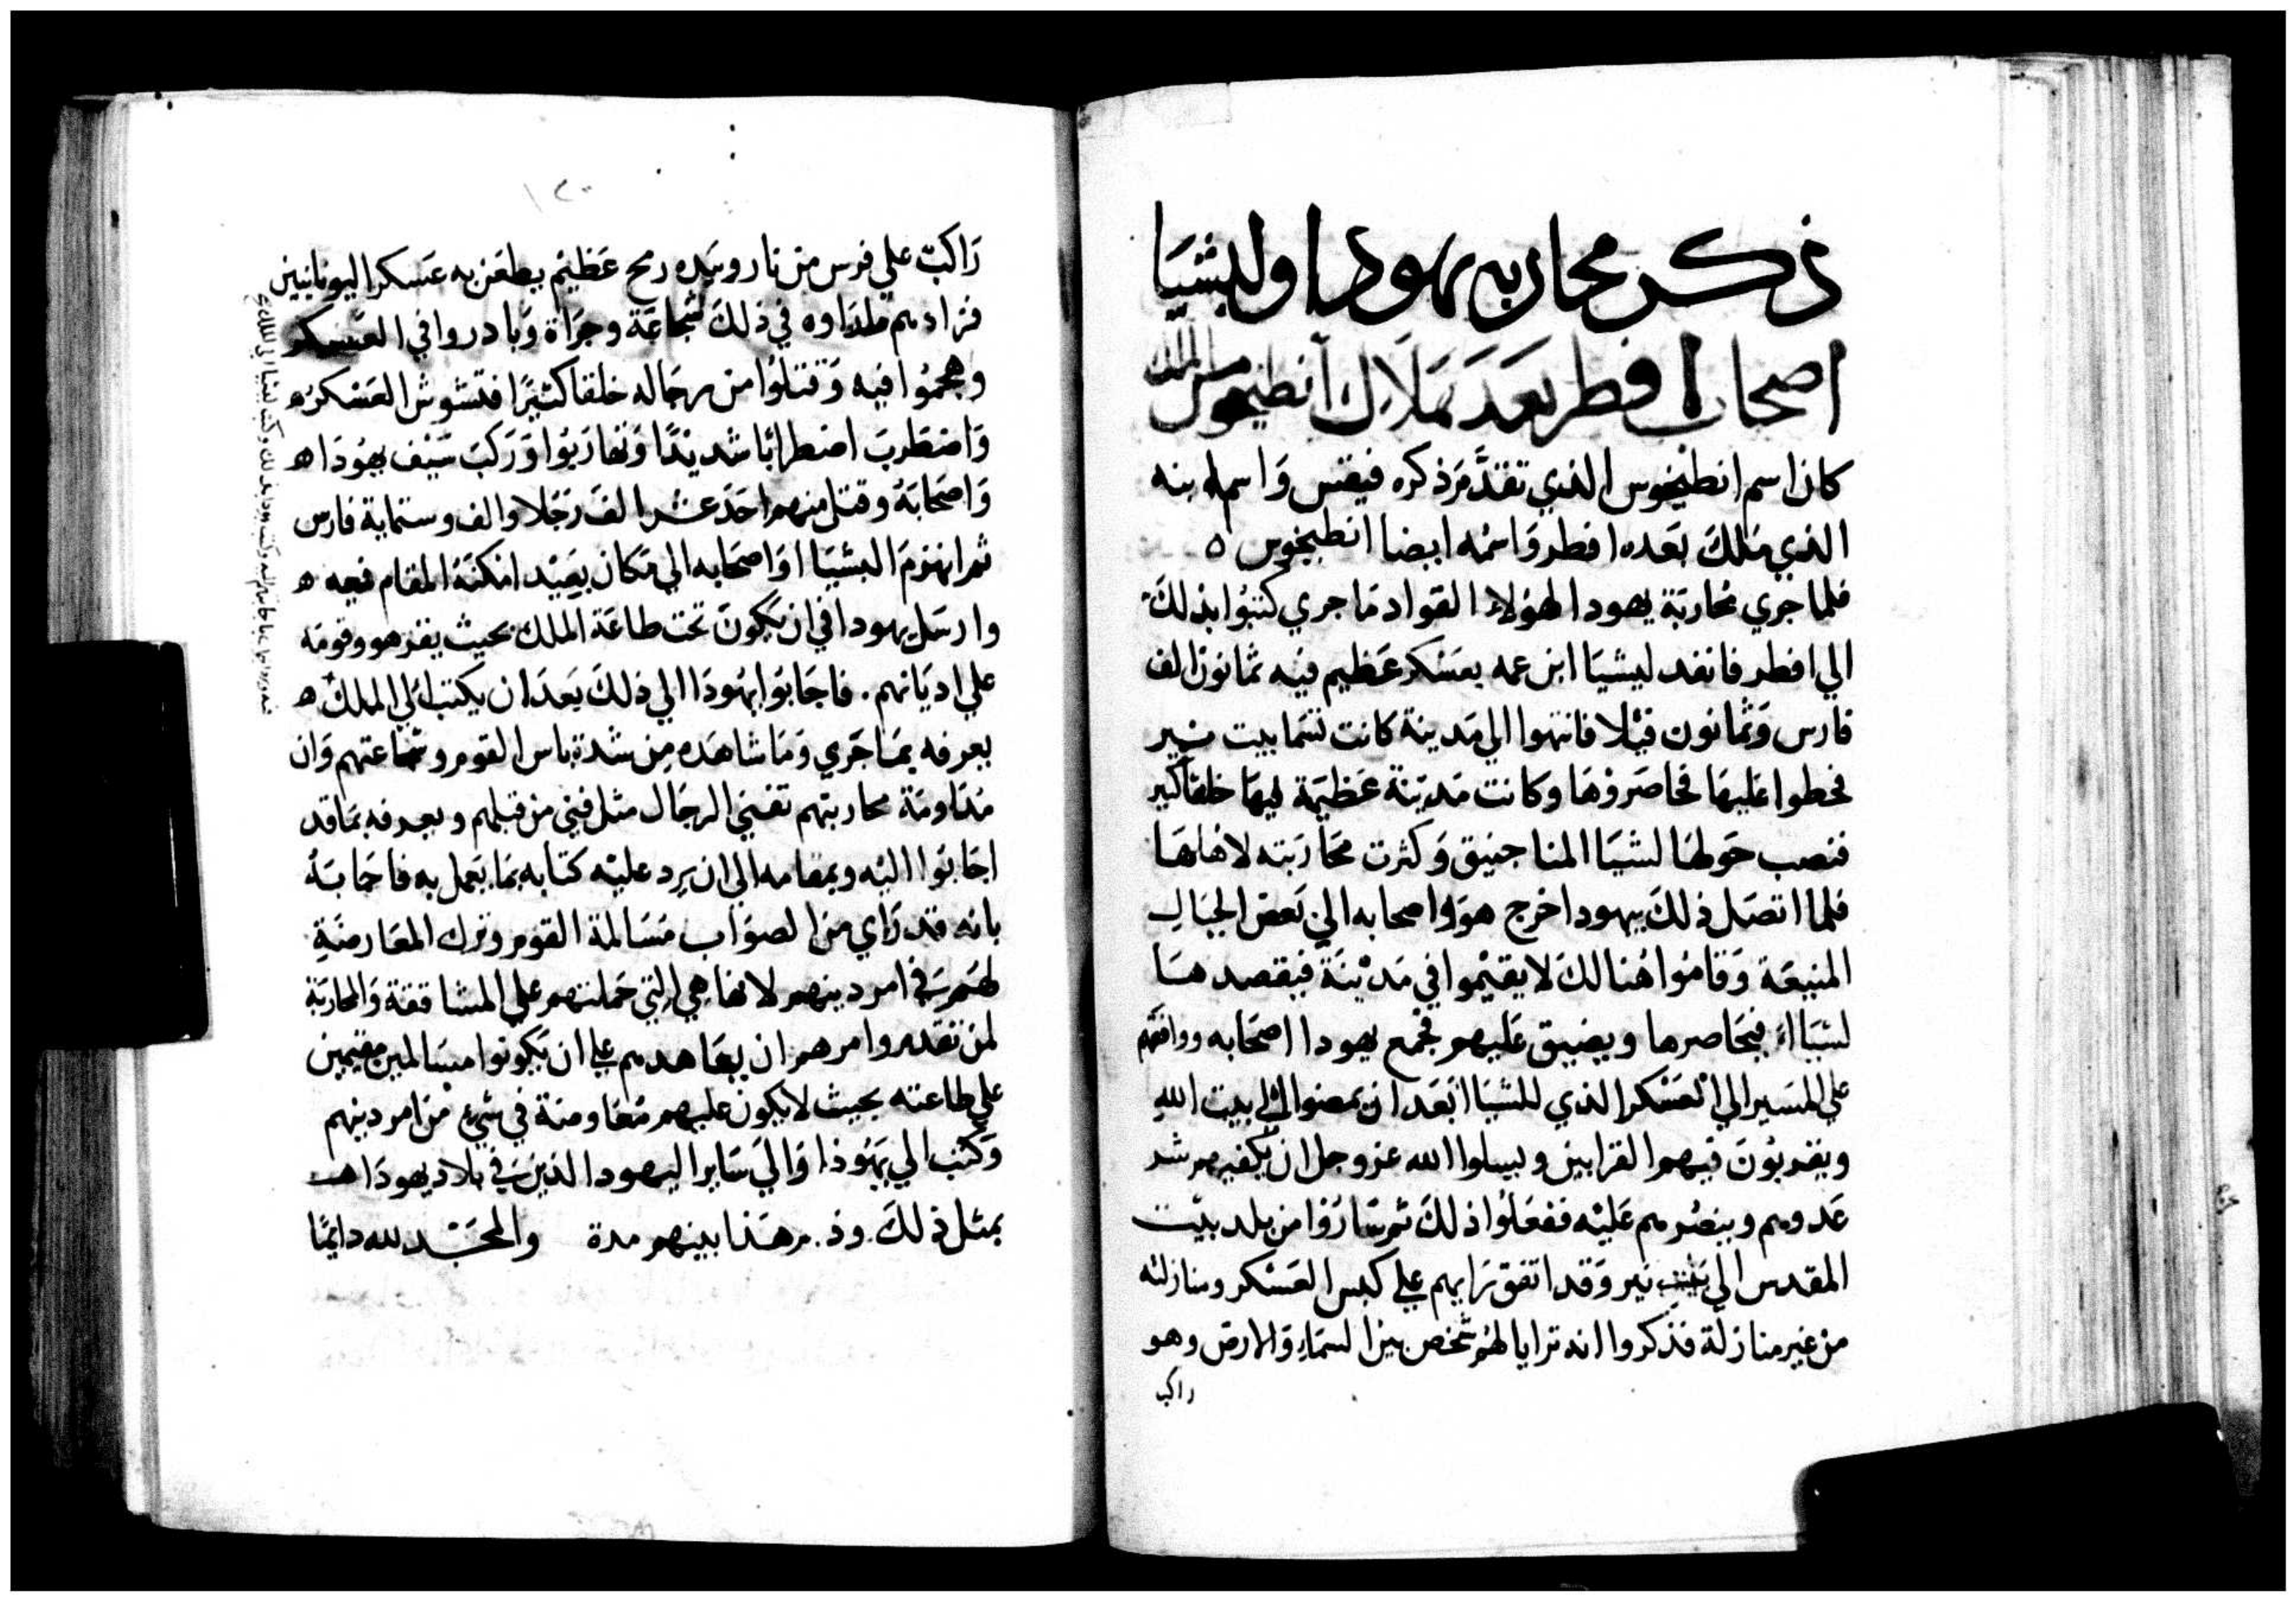 ذكر محاربه يهودا ولبشيا
اصحاب افطر بعد هلاك انطيخوس الملك
كان اسم انطيخوس الذي تقدم ذكره فيقتس واسم ابنه
الذي ملك بعده افطر واسمه ايضا انطيخوس ه
فلما جري محاربة يهودا لهولاء القواد ما جري كتبوا بذلك
الي افطر فانفد ليشيا ابن عمه بعسكر عظيم فيه ثمانون الف
فارس وثمانون فيلا فانتهوا الي مدينة كانت تسما بيت نير
فحطوا عليها فحاصروها وكانت مدينة عظيمة فيها خلقا كبير
فنصب حولها لشيا المناجنيق وكثرت محاربته لاهلها
فلما اتصل ذلك بيهودا خرج هو واصحابه الي بعض الجبال
المنيعة وقاموا هنالك لا يقيموا في مدينة فيقصدهما
لشيااء فيحاصرها ويضيق عليهم فجمع يهودا اصحابه ووافقهم
علي المسير الي العسكر الذي للشيا بعد ان يمضوا الي بيت الله
ويقربون فيهم القرابين ويسلوا الله عز وجل ان يكفيهم شر
عدوهم وينصرهم عليه ففعلوا ذلك ثم ساروا من بلد بيت
المقدس الي بيت نير وقد اتفق رايهم علي كبس العسكر ومنازلته
من غير منازلة فذكروا انه ترايا لهم شخص بين السماء والارض وهو
راكب
راكب علي فرس من نار وبيده رمح عظيم يطعن به عسكر اليونانيين
فزادهم ما راوه في ذلك شجاعة وجراة وبادروا في العسكر
وهجموا فيه وقتلوا من رجاله خلقا كثيرا فتشوش العسكر ه
واضطرب اضطرابا شديدا وتهاربوا وركب سيف يهودا ه
واصحابه وقتل منهم احد عشر الف رجلا والف وستماية فارس
ثم انهزم البشيا واصحابه الي مكان بعيد امكنه المقام فيه ه
وارسل يهودا في ان يكون تحت طاعة الملك بحيث يقر هو وقومه
علي اديانهم. فاجابوا يهودا الي ذلك بعد ان يكتب الي الملك ه
يعرفه بما جري وما شاهده من شدة باس القوم وشجاعتهم وان
مداومة محاربتهم تفني الرجال مثل فني من قبلهم ويعرفه بما قد
اجابوا اليه وبمقامه الي ان يرد عليه كتابه بما يعمل به فاجابه
بانه قد راي من الصواب مسالمة القوم وترك المعارضة
لهم في امر دينهم لانها هي التي حملتهم علي المشاققة والمحاربة
لمن تقدم وامرهم ان يعاهدهم علي ان يكونوا مسالمين مقيمين
علي طاعته بحيث لا يكون عليهم معاوضة في شيء من امر دينهم
وكتب الي يهوذا والي ساير اليهود الذين في بلاد يهودا
بمثل ذلك هذا بينهم مدة والمجد لله دايما